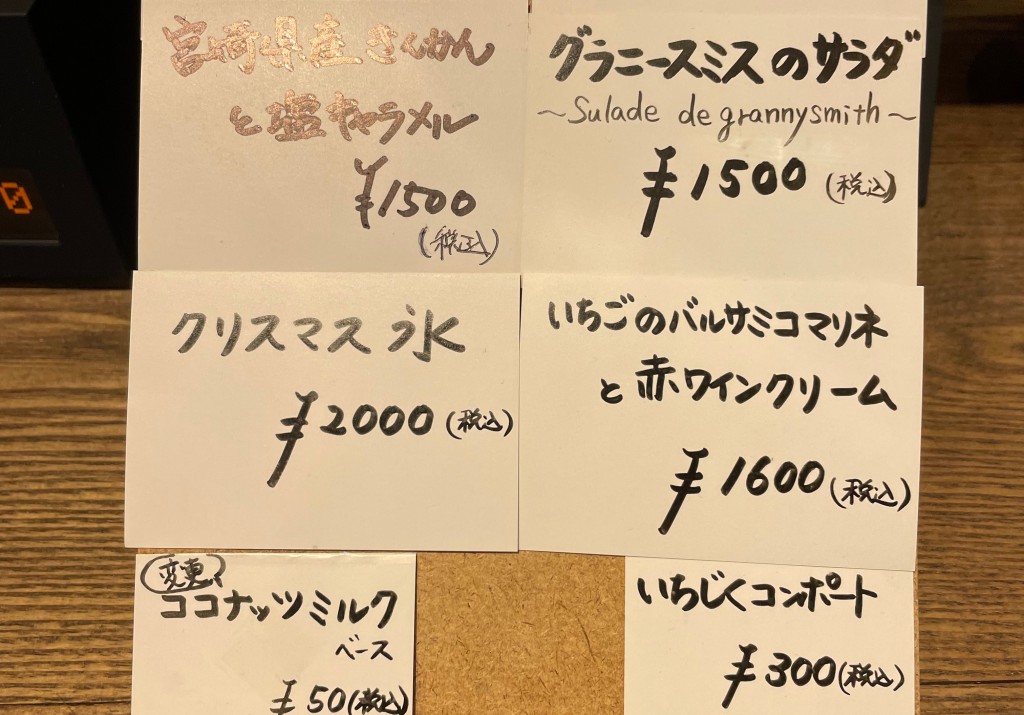 宮崎県産きんかん
と塩キャラメル
¥1500
(税込)
グラニースミスのサラダ
~Sulade de grannysmith~
¥1500(税込)
クリスマス氷
¥2000(税込)
いちごのバルサミコマリネ
と赤ワインクリーム
¥1600(税込)
変更
ココナッツミルク
ベース
¥50(税込)
いちじくコンポート
¥300(税込)
0